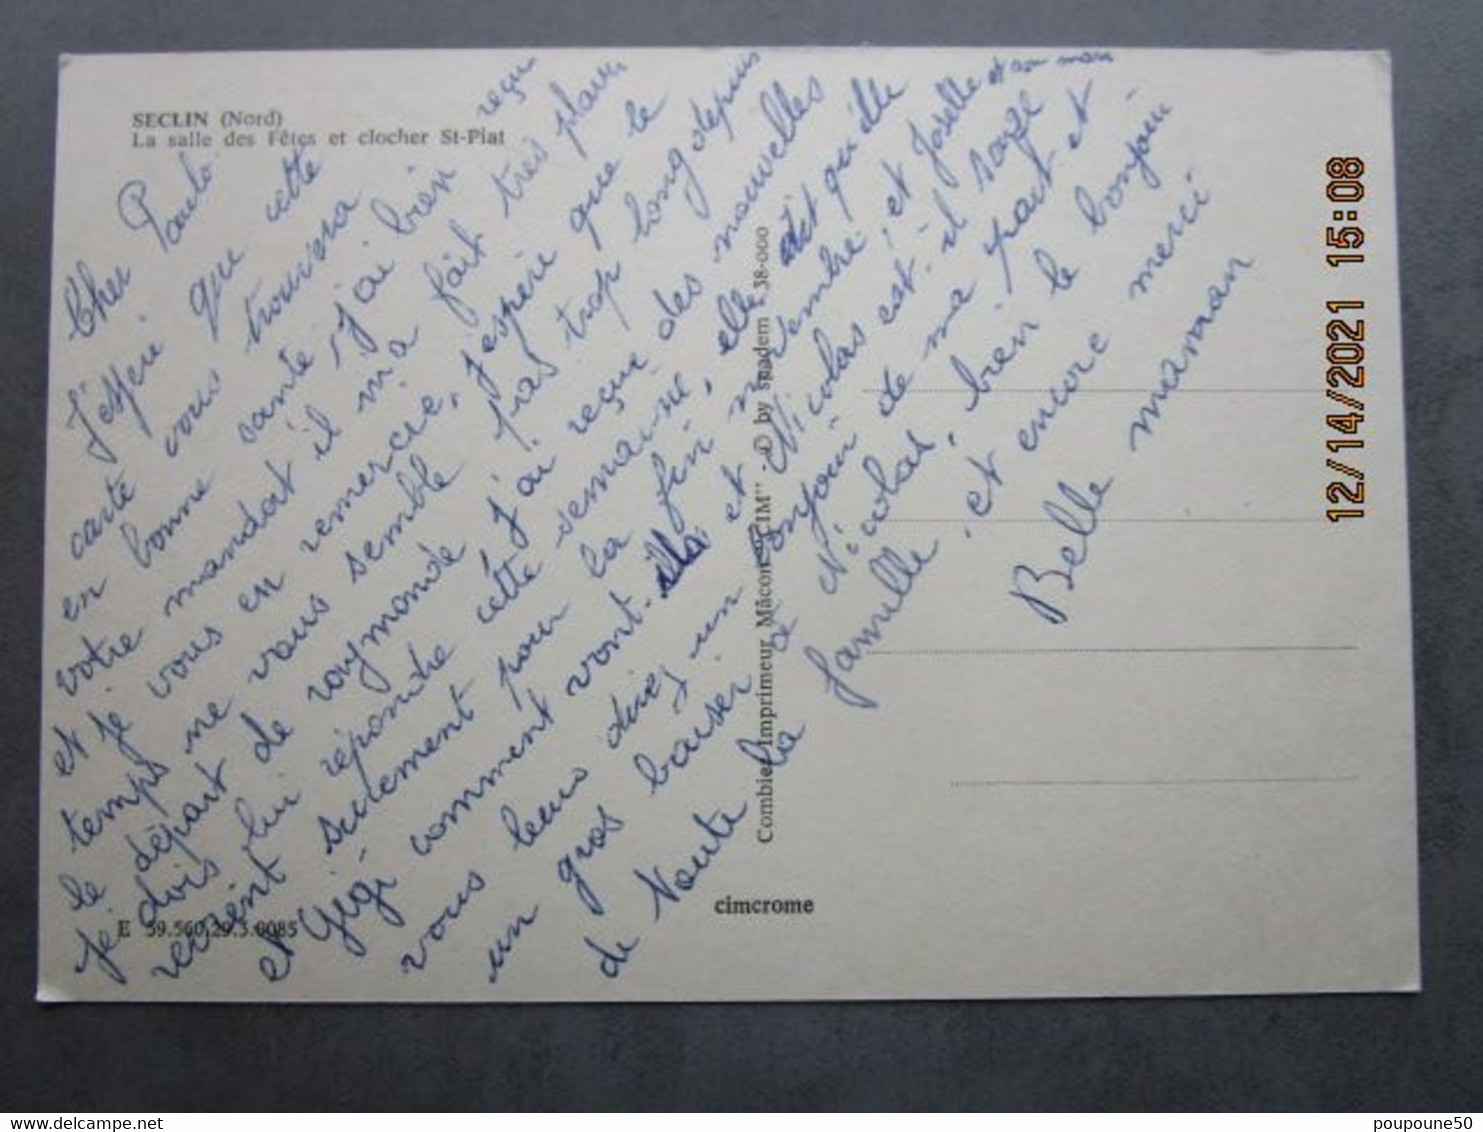 SECLIN (Nord)
La salle des Fêtes et clocher St-Piat
Cher Paulo
J'espère que cette
carte vous trouvera
en bonne santé j'ai bien reçu
votre mandat il m'a fait très plaisir
et je vous en remercie, j'espère que le
temps ne vous semble pas trop long depuis
le départ de raymonde j'ai reçue des nouvelles
je dois lui répondre cette semaine, elle dit qu'elle
revient seulement pour la fin novembre, et Joselle et son mari
et Gigi comment vont-ils et Nicolas est-il sage
vous leur direz un bonjour de ma part et
un gros baiser a Nicolas, bien le bonjour
de Noute la famille, et encore merci
Belle maman
Combier Imprimeur Mâcon "CIM" - © by spadem - 38.000
E 59.560.29.3.0085
cimcrome
12/14/2021 15:08
poupoune50